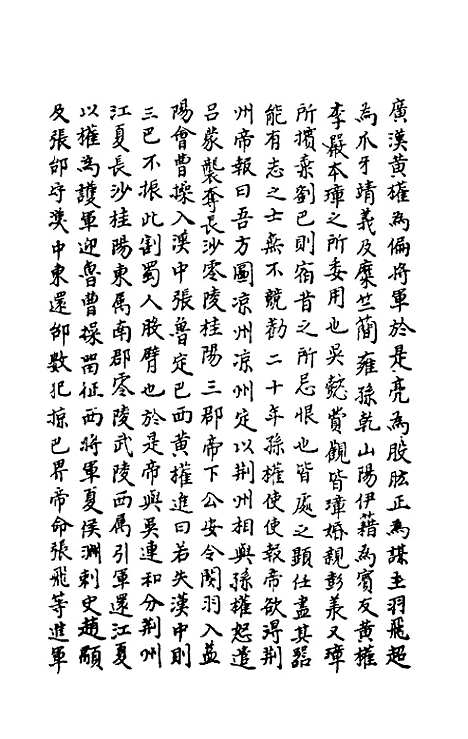 廣漢黃權為偏將軍於是亮為股肱正為謀主羽飛超
為爪牙靖羲及糜竺蕳雍孫乾山陽伊籍為賓友黃權
李嚴本璋之所委用也吳懿費觀皆璋婚親彭羕又璋
所擯棄劉巴則宿昔之所忌恨也皆處之顯任盡其器
能有志之士無不競勸二十年孫權使使報帝欲得荊
州帝報曰吾方圖凉州凉州定以荆州相與孫權怒遣
吕蒙襲奪長沙零陵桂陽三郡帝下公安令關羽入益
陽會曹操入漢中張魯定巴西黃權進曰若失漢中則
三巴不振此割蜀人股臂也於是帝與吳連和分荆州
江夏長沙桂陽東属南郡零陵武陵西属引軍還江夏
以權為護軍迎魯曹操畱征西將軍夏侯渊刺史趙顒
及張郃守漢中東還郃數犯掠巴界帝命張飛等進軍